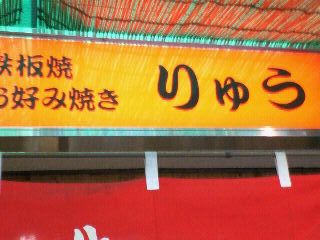 鉄板焼
お好み焼き
りゅう